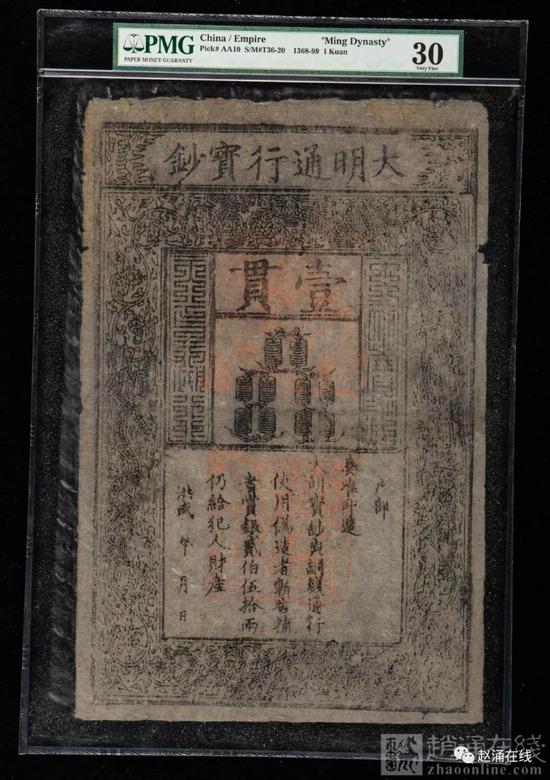 PMG
PAPER MONEY GUARANTY
China / Empire "Ming Dynasty"
Pick# AA10 S/M#T36-20 1368-99 1 Kuan
30
Very Fine
大明通行寶鈔
壹貫
户部
奏准印造
大明寶鈔與銅錢通行
使用偽造者斬告捕
者賞銀貳伯伍拾兩
仍給犯人財産
洪武 年 月 日
趙涌在線
zhaoonline.com
赵涌在线